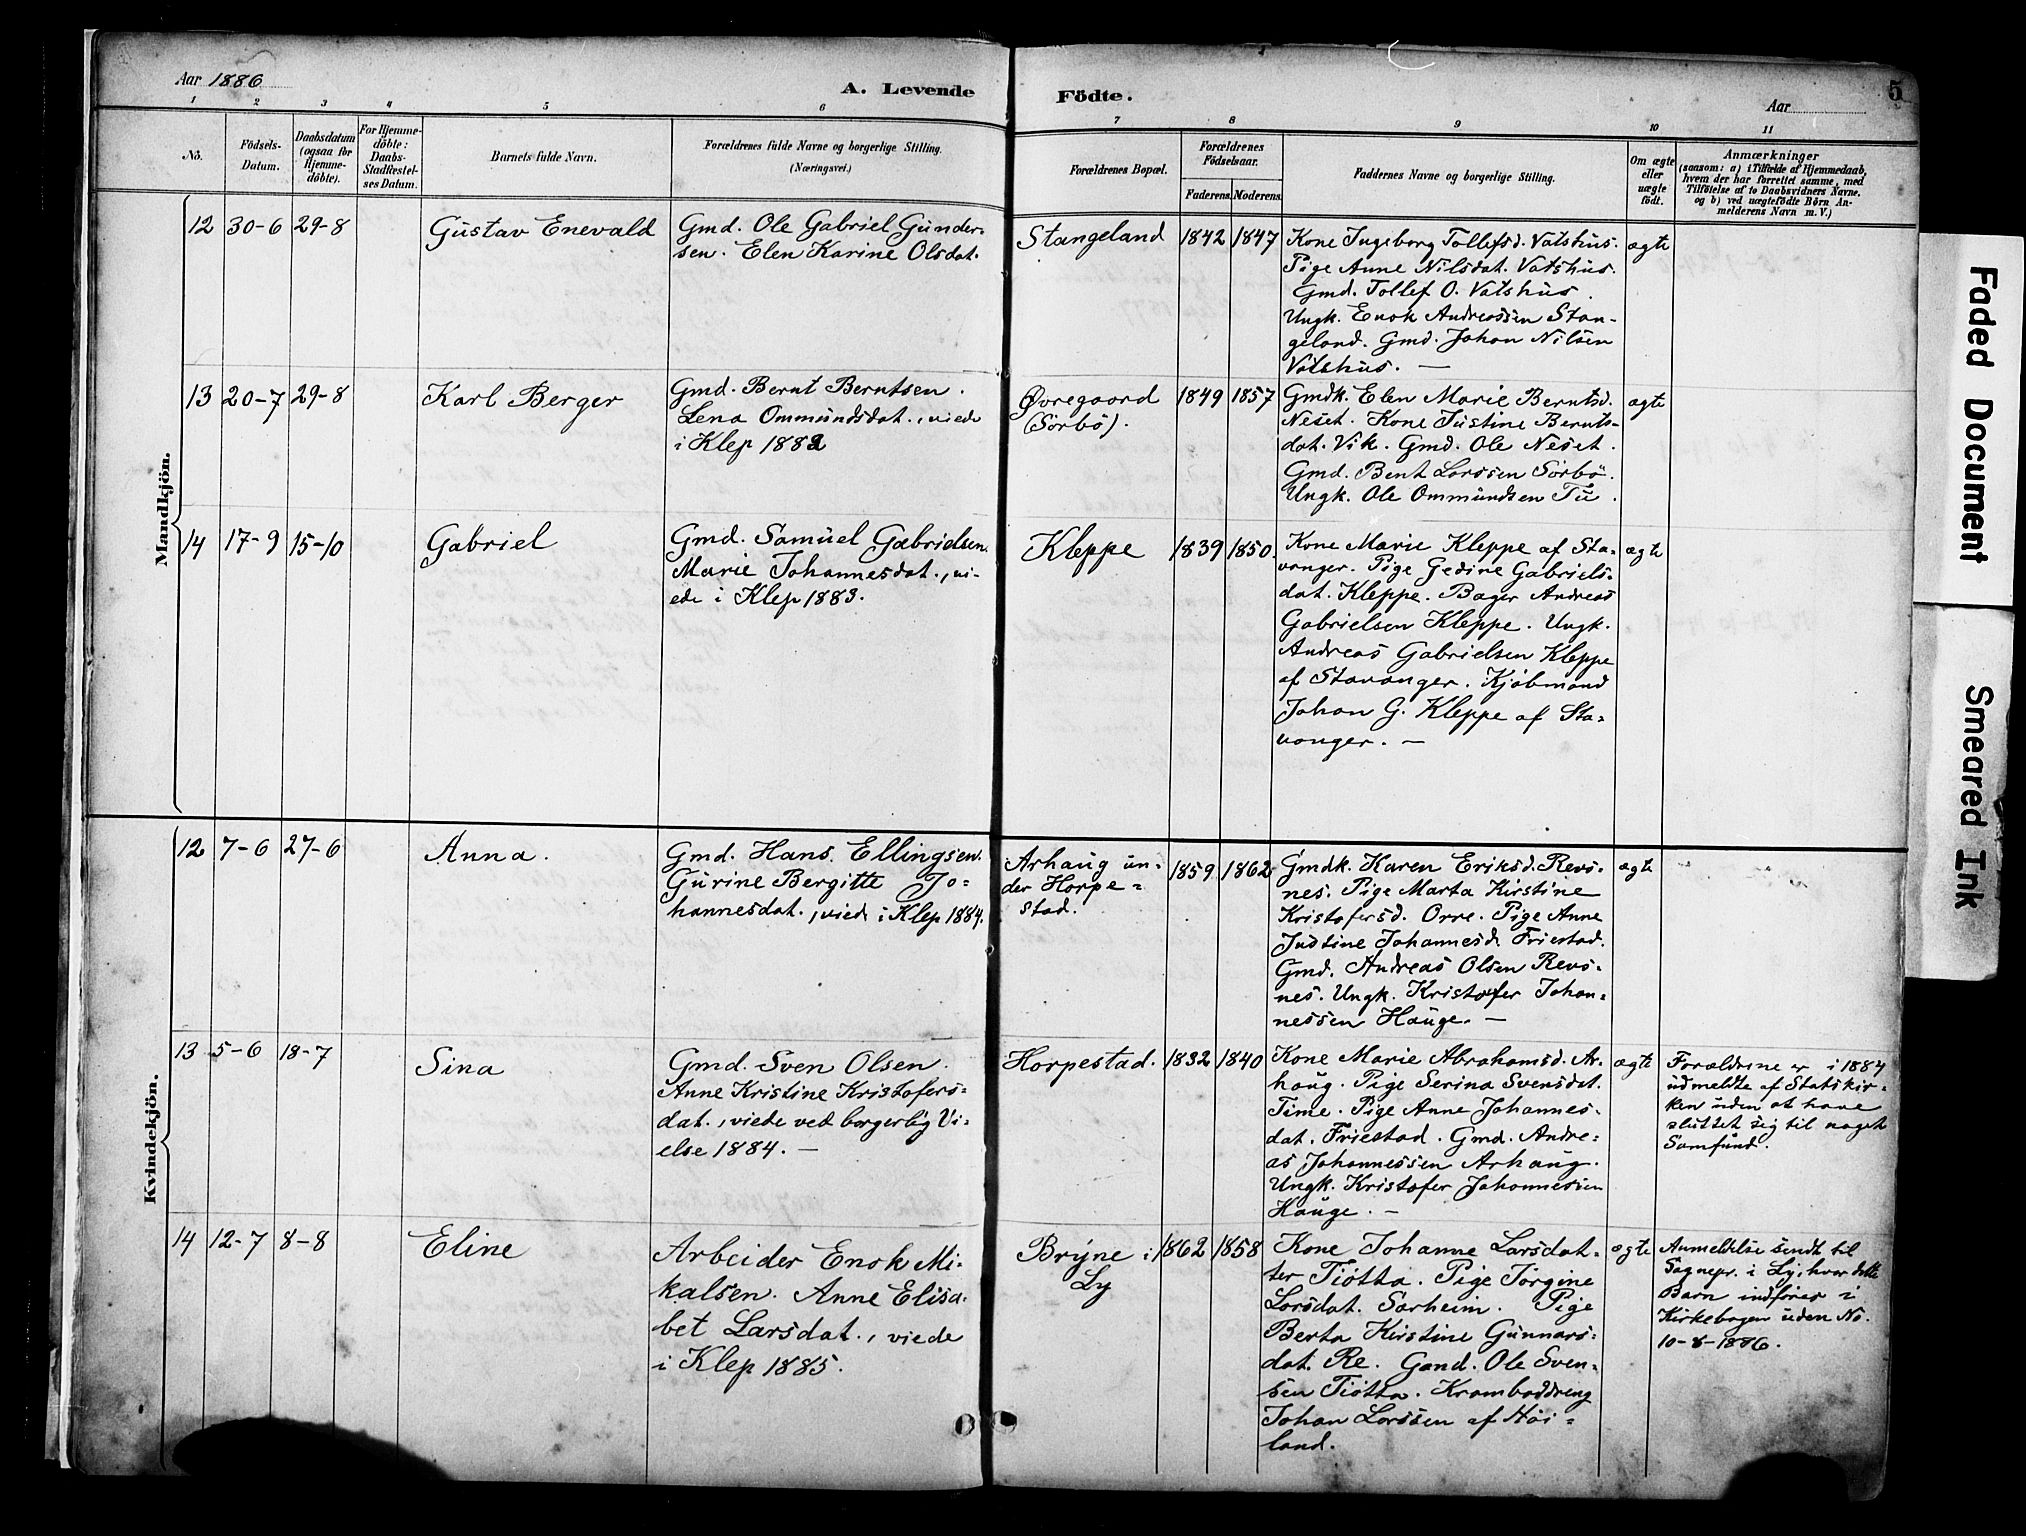 Aar 1886
A. Levende Födte.
Aar
5
1 2 3 4 5 6 7 8 9 10 11
Nö.
Födsels-
Datum.
Daabsdatum
(ogsaa for
Hjemme-
döbte).
For Hjemme-
döbte:
Daabs-
Stadfæstel-
ses Datum.
Barnets fulde Navn.
Forældrenes fulde Navne og borgerlige Stilling.
(Næringsvei.)
Forældrenes Bopæl.
Forældrenes
Födselsaar.
Faderens. Moderens.
Faddernes Navne og borgerlige Stilling.
Om ægte
eller
uægte
födt.
Anmærkninger
(saasom: a) i Tilfælde af Hjemmedaab,
hvem der har forrettet samme, med
Tilföielse af to Daabsvidners Navne.
og b) ved uægtefödte Börn An-
melderens Navn m. V.)
Mandkjön.
12 30-6 29-8
Gustav Enevald
Gmd. Ole Gabriel Gunder-
sen. Elen Karine Olsdat.
Stangeland
1842 1847
Kone Ingeborg Tollefsd. Vatshus.
Pige Anne Nilsdat. Vatshus.
Gmd. Tollef O. Vatshus.
Ungk. Enok Andreassen Stan-
geland. Gmd. Johan Nilsen
Vatshus. —
ægte
13 20-7 29-8
Karl Berger
Gmd. Bernt Berntsen.
Lena Ommundsdat., viede
i Klep 1882
Øvregaard
(Sörbö).
1849 1857
Gmdk. Elen Marie Berntsd.
Neset. Kone Justine Bernts-
dat. Vik. Gmd. Ole Neset.
Gmd. Bent Larssen Sörbö.
Ungk. Ole Ommundsen Tu.
ægte
14 17-9 15-10
Gabriel
Gmd. Samuel Gabrielsen.
Marie Johannesdat., vi-
ede i Klep 1883.
Kleppe
1839 1850
Kone Marie Kleppe af Sta-
vanger. Pige Gedine Gabriels-
dat. Kleppe. Bager Andreas
Gabrielsen Kleppe. Ungk.
Andreas Gabrielsen Kleppe
af Stavanger. Kjöbmand
Johan G. Kleppe af Sta-
vanger. —
ægte
Kvindekjön.
12 7-6 27-6
Anna.
Gmd. Hans Ellingsen.
Gurine Bergitte Jo-
hannesdat., viede i Klep 1884.
Arhaug un-
der Horpe-
stad.
1859 1862
Gmdk. Karen Eriksd. Revs-
nes. Pige Marta Kirstine
Kristofersd. Orre. Pige Anne
Justine Johannesd. Friestad.
Gmd. Andreas Olsen Revs-
nes. Ungk. Kristofer Johan-
nessen Hauge. —
ægte
13 5-6 18-7
Sina
Gmd. Sven Olsen.
Anne Kristine Kristofers-
dat., viede ved borgerlig Vi-
else 1884. —
Horpestad.
1832 1840
Kone Marie Abrahamsd. Ar-
haug. Pige Serina Svensdat.
Time. Pige Anne Johannes-
dat. Friestad. Gmd. Andre-
as Johannessen Arhaug.
Ungk. Kristofer Johannessen
Hauge. —
ægte
Forældrene er i 1884
udmeldte af Statskir-
ken uden at have
sluttet sig til noget
Samfund.
14 12-7 8-8
Eline
Arbeider Enok Mi-
kalsen. Anne Elisa-
bet Larsdat., viede
i Klep 1885.
Bryne i
Ly
1862 1858
Kone Johanne Larsdat-
ter Tiötta. Pige Jörgine
Larsdat. Sarheim. Pige
Berta Kirstine Gunnars-
dat. Re. Gmd. Ole Sven-
sen Tiötta. Kramboddreng
Johan Larssen af Höi-
land.
ægte
Anmeldelse sendt til
Sognepr. i Ly, hvor dette
Barn indföres i
Kirkebogen uden No.
10-8-1886.
Faded Document
Smeared Ink